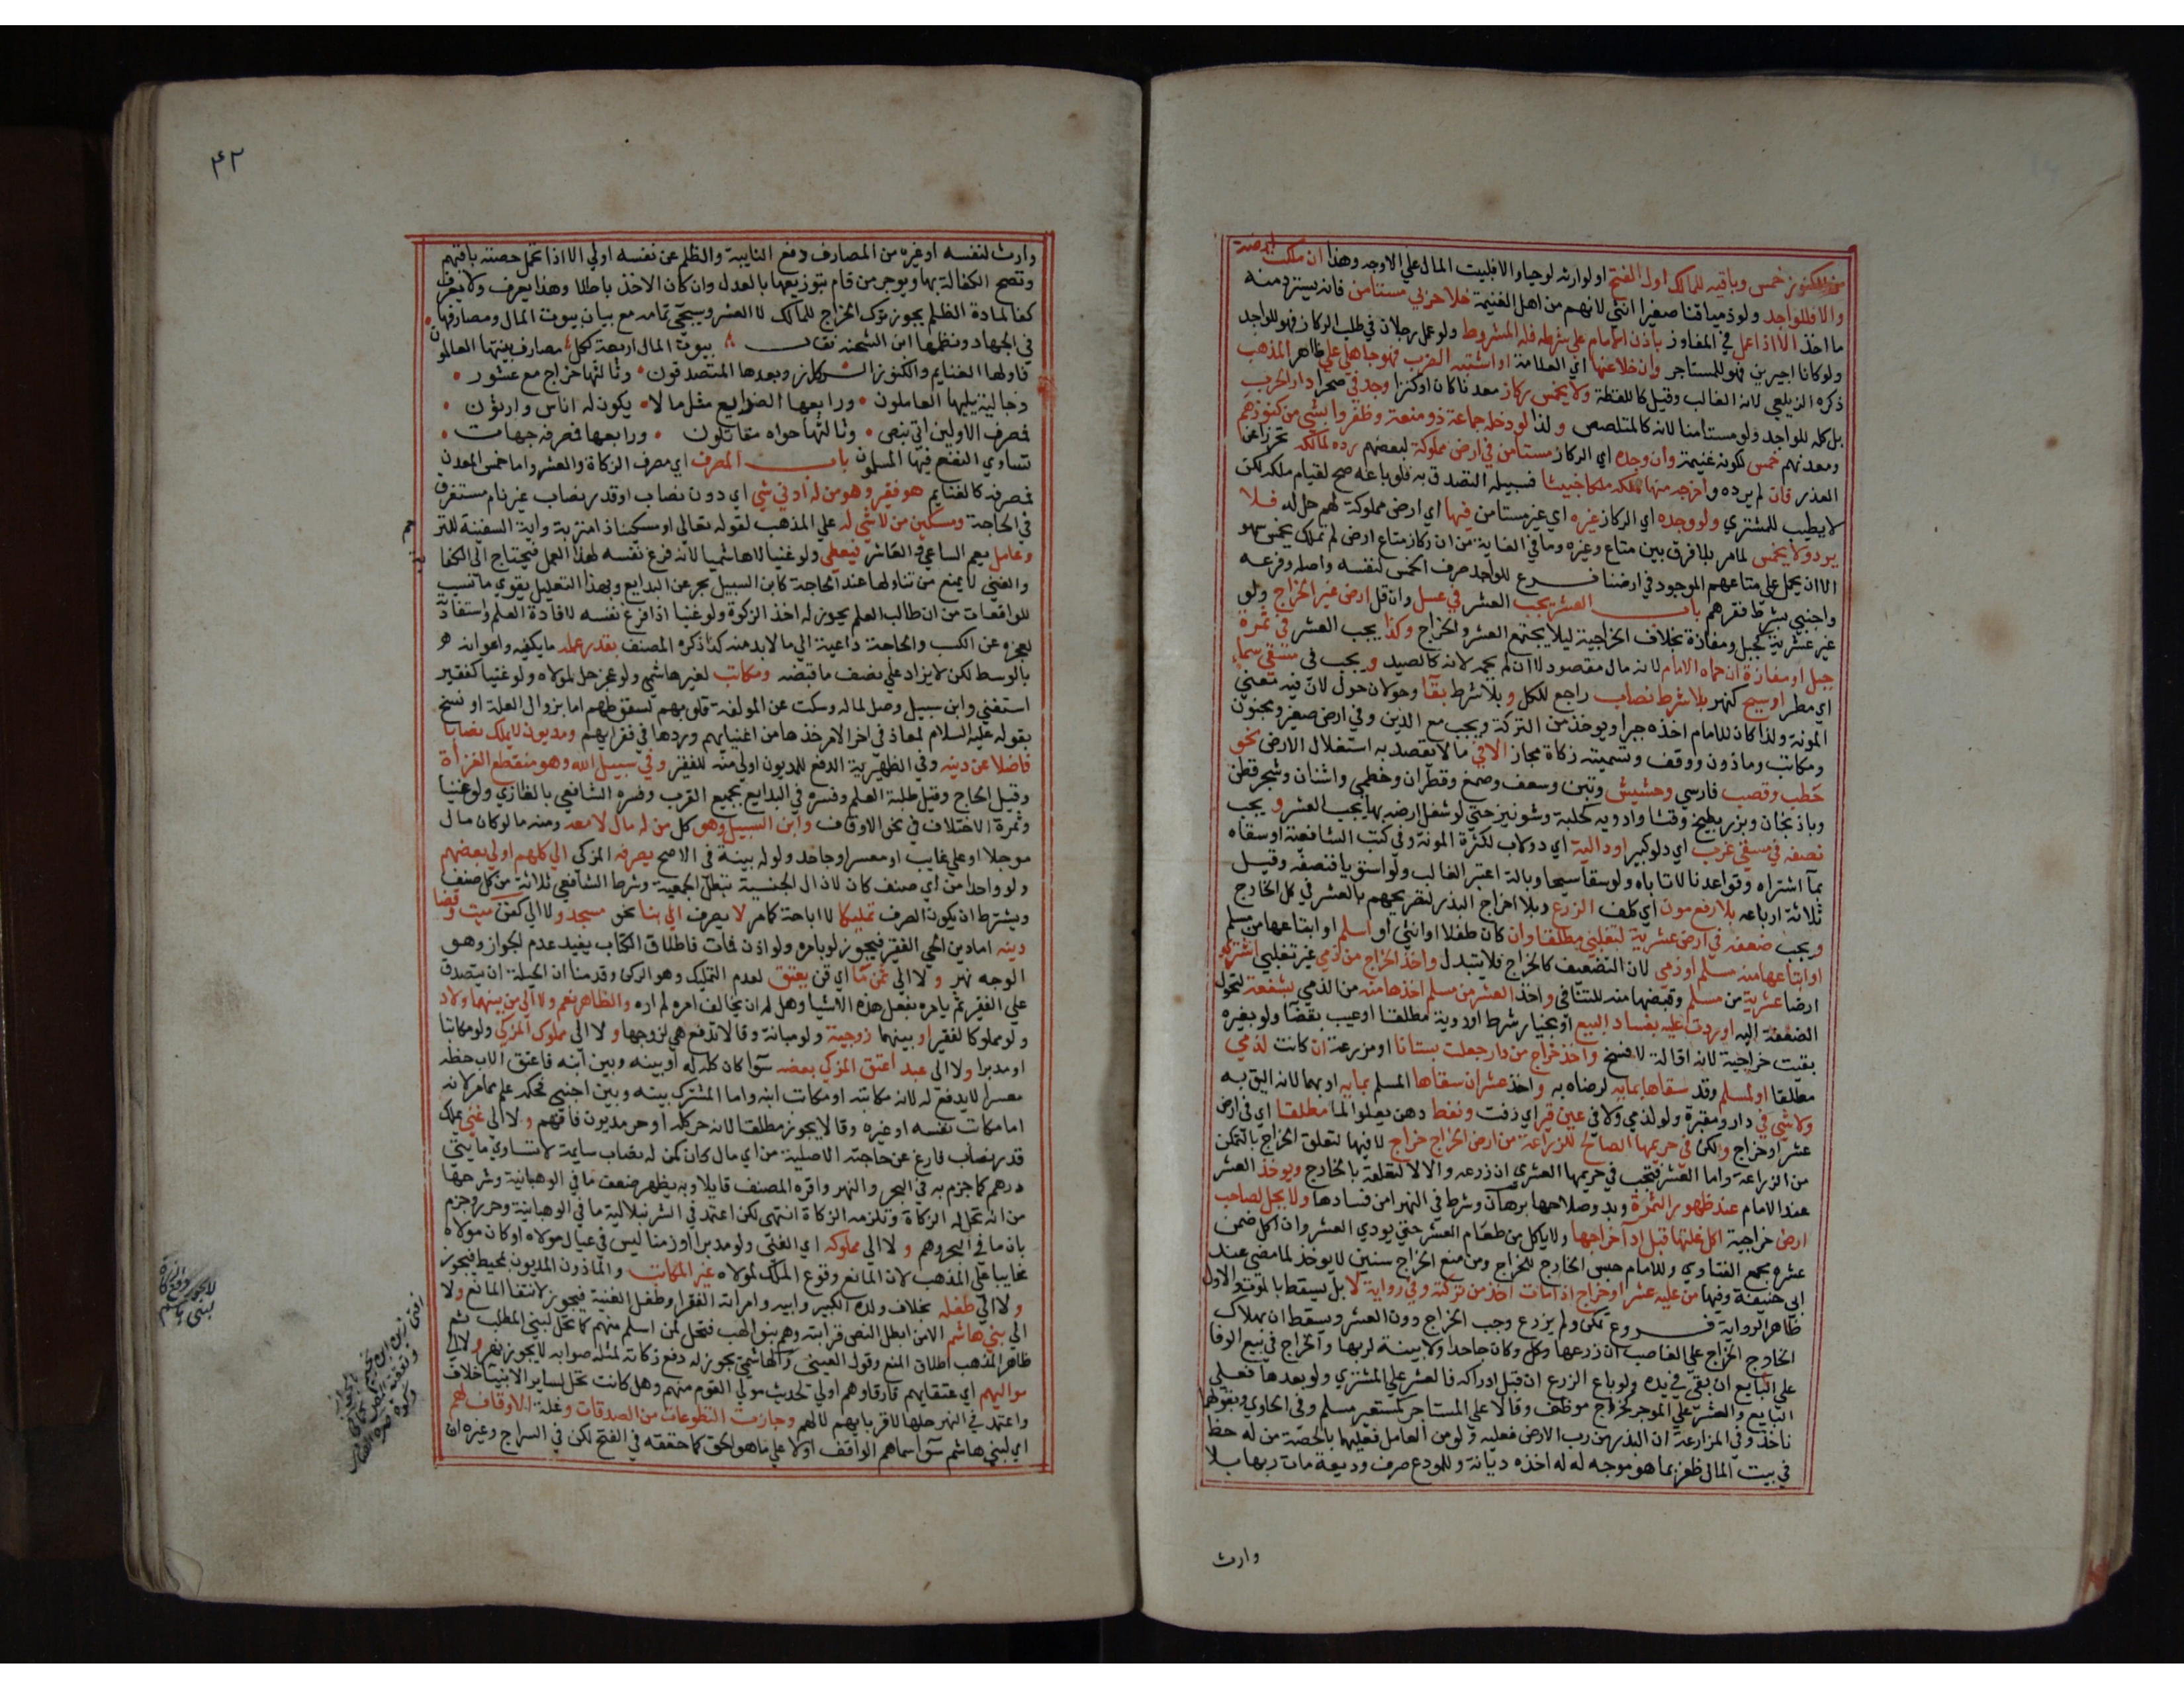 من الكنوز خمس وباقيه للمالك اول الفتح او لوارثه لو حيا والا فلبيت المال علي الاوجه وهذا ان ملكت ارضه
والا فللواجد ولو ذميا قنا صغيرا انثي لانهم من اهل الغنيمة خلا حربي مستامن فانه يسترد منه
ما اخذ الا اذا عمل في المفاوز باذن الامام علي شرط فله المشروط ولو عمل رجلان في طلب الركاز فهو للواجد
ولو كانا اجيرين فهو للمستاجر وان خلا عنها اي العلامة او اشتبه الضرب فهو جاهلي علي ظاهر المذهب
ذكره الزيلعي لانه الغالب وقيل كاللقطة ولا يخمس ركاز معدنا كان او كنزا وجد في صحرا دار الحرب
بل كله للواجد ولو مستامنا لانه كالمتلصص ولذا لو دخله جماعة ذو منعة وظفروا بشي من كنوزهم
ومعدنهم خمس لكونه غنيمة وان وجده اي الركاز مستامن في ارض مملوكة لبعضهم رده لمالكه تحرزا عن
الغدر فان لم يرده واخرجه منها ملكه ملكا خبيثا فسبيله التصدق به فلو باعه صح لقيام ملكه لكن
لا يطيب للمشتري ولو وجده اي الركاز غيره اي غير مستامن فيها اي ارض مملوكة لهم حل له فلا
يرد ولا يخمس لما مر بلا فرق بين متاع وغيره وما في النقاية من ان ركاز متاع ارض لم تملك يخمس سهو
الا ان يحمل علي متاعهم الموجود في ارضنا فرع للواجد صرف الخمس لنفسه واصله وفرعه
واجنبي بشرط فقرهم باب العشر يجب العشر في عسل وان قل ارض غير الخراج ولو
غير عشرية كجبل ومفازة بخلاف الخراجية ليلا يجتمع العشر والخراج وكذا يجب العشر في ثمرة
جبل او مفازة ان حماه الامام لانه مال مقصود لا ان لم يحمه لانه كالصيد ويجب في مسقي سماء
اي مطر او سيح كنهر بلا شرط نصاب راجع للكل وبلا شرط بقا وحولان حول لان فيه معني
المونة ولذا كان للامام اخذه جبرا ويوخذ من التركة ويجب مع الدين وفي ارض صغير ومجنون
ومكاتب وماذون ووقف وتسميته زكاة مجاز الا في ما لا يقصد به استغلال الارض نحو
حطب وقصب فارسي وحشيش وتبن وسعف وصمغ وقطران وخطمي واشنان وشجر قطن
وباذنجان وبزر بطيخ وقثا وادويه كحلبة وشونيز حتي لو شغل ارضه بها يجب العشر ويجب
نصفه في مسقي غرب اي دلو كبير او دالية اي دولاب لكثرة المونة وفي كتب الشافعية او سقاه
بما اشتراه وقواعدنا لا تاباه ولو سقا سيحا وبالة اعتبر الغالب ولو استويا فنصفه وقيل
ثلاثة ارباعه بلا رفع مون اي كلف الزرع وبلا اخراج البذر لتصريحهم بالعشر في كل الخارج
ويجب ضعفه في ارض عشرية لتغلبي مطلقا وان كان طفلا او انثي او اسلم او ابتاعها من مسلم
او ابتاعها منه مسلم او ذمي لان التضعيف كالخراج فلا يتبدل واخذ الخراج من ذمي غير تغلبي اشتري
ارضا عشرية من مسلم وقبضها منه للتنافي واخذ العشر من مسلم اخذها منه من الذمي بشفعة لتحول
الصفقة اليه او ردت عليه لفساد البيع او بخيار شرط او روية مطلقا او عيب بقضا ولو بغيره
بقيت خراجية لانه اقالة لا فسخ واخذ خراج من دار جعلت بستانا او مزرعة ان كانت لذمي
مطلقا او لمسلم وقد سقاها بمايه لرضاه به واخذ عشر ان سقاها المسلم بمايه او بهما لانه اليق به
ولا شي في دار ومقبرة ولو لذمي ولا في عين قير اي زفت ونفط دهن يعلو الما مطلقا اي في ارض
عشر او خراج ولكن في حريمها الصالح للزراعة من ارض الخراج خراج لا فيها لتعلق الخراج بالتمكن
من الزراعة واما العشر فيجب في حريمها العشري ان زرعه والا لا لتعلقه بالخارج ويوخذ العشر
عند الامام عند ظهور الثمرة وبدو صلاحها برهان وشرط في النهر امن فسادها ولا يحل لصاحب
ارض خراجية اكل غلتها قبل اداء خراجها ولا ياكل من طعام العشر حتي يودي العشر وان اكل ضمن
عشره مجمع الفتاوي وللامام حبس الخارج للخراج ومن منع الخراج سنين لا يوخذ لما مضي عند
ابي حنيفة وفيها من عليه عشر او خراج اذا مات اخذ من تركته وفي رواية لا بل يسقط بالموت والاول
ظاهر الرواية فروع تمكن ولم يزرع وجب الخراج دون العشر ويسقطان بهلاك
الخارج الخراج علي الغاصب ان زرعها وكان جاحدا ولا بينة لربها والخراج في بيع الوفا
علي البايع ان بقي في يده ولو باع الزرع ان قبل ادراكه فالعشر علي المشتري ولو بعده فعلي
البايع والعشر علي الموجر كخراج موظف وقالا علي المستاجر كمستعير مسلم وفي الحاوي وبقولهما
ناخذ وفي المزارعة ان البذر من رب الارض فعليه ولو من العامل فعليهما بالحصة من له حظ
في بيت المال ظفر بما هو موجه له له اخذه ديانة وللمودع صرف وديعة مات ربها بلا
وارث
٤٢
وارث لنفسه او غيره من المصارف دفع النايبة والظلم عن نفسه اولي الا اذا تحمل حصته باقيهم
وتصح الكفالة بها ويوجر من قام بتوزيعها بالعدل وان كان الاخذ باطلا وهذا يعرف ولا يعرف
كفا لمادة الظلم يجوز ترك الخراج للمالك لا العشر وسيجي تمامه مع بيان بيوت المال ومصارفها
في الجهاد ونظمها ابن الشحنه فقال بيوت المال اربعة لكل مصارف بينتها العالمون
فاولها الغنايم والكنوز ركاز وبعدها المتصدقون وثالثها خراج مع عشور
وجالية يليها العاملون ورابعها الضوايع مثل مالا يكون له اناس وارثون
فمصرف الاولين اتي بنص وثالثها حواه مقاتلون ورابعها فمصرفه جهات
تساوي النفع فيها المسلمون باب المصرف اي مصرف الزكاة والعشر واما خمس المعدن
فمصرفه كالغنايم هو فقير وهو من له ادني شي اي دون نصاب او قدر نصاب غير نام مستغرق
في الحاجة ومسكين من لا شي له علي المذهب لقوله تعالي او مسكينا ذا متربة واية السفينة للتر
حم
وعامل يعم الساعي والعاشر فيعطي ولو غنيا لا هاشميا لانه فرغ نفسه لهذا العمل فيحتاج الي الكفا
ية
والغني لا يمنع من تناولها عند الحاجة كابن السبيل بحر عن البدايع وبهذا التعليل يقوي ما نسب
للواقعات من ان طالب العلم يجوز له اخذ الزكوة ولو غنيا اذا فرغ نفسه لافادة العلم واستفادته
لعجزه عن الكسب والحاجة داعية الي ما لا بد منه كذا ذكره المصنف بقدر عمله ما يكفيه واعوانه
بالوسط لكن لا يزاد علي نصف ما قبضه ومكاتب لغير هاشمي ولو عجز حل لمولاه ولو غنيا كفقير
استغني وابن سبيل وصل لماله وسكت عن المولفة قلوبهم لسقوطهم اما بزوال العلة او نسخ
بقوله عليه السلام لمعاذ في اخر الامر خذها من اغنيايهم وردها في فقرايهم ومديون لا يملك نصابا
فاضلا عن دينه وفي الظهيرية الدفع للمديون اولي منه للفقير وفي سبيل الله وهو منقطع الغزاة
وقيل الحاج وقيل طلبة العلم وفسره في البدايع بجميع القرب وفسره الشافعي بالغازي ولو غنيا
وثمرة الاختلاف في نحو الاوقاف وابن السبيل وهو كل من له مال لا معه ومنه ما لو كان مال
موجلا او علي غايب او معسر او جاحد ولو له بينة في الاصح يصرف المزكي الي كلهم او الي بعضهم
ولو واحدا من اي صنف كان لان ال الجنسية تبطل الجمعية وشرط الشافعي ثلاثة من كل صنف
ويشترط ان يكون الصرف تمليكا لا اباحة كما مر لا يصرف الي بنا نحو مسجد ولا الي كفن ميت وقضا
دينه اما دين الحي الفقير فيجوز لو بامره ولو اذن فمات فاطلاق الكتاب يفيد عدم الجواز وهو
الوجه نهر ولا الي ثمن ما اي قن يعتق لعدم التمليك وهو الركن وقدمنا ان الحيلة ان يتصدق
علي الفقير ثم يامره بفعل هذه الاشيا وهل له ان يخالف امره لم اره والظاهر نعم ولا الي من بينهما ولاد
ولو مملوكا لفقير او بينهما زوجية ولو مبانة وقالا تدفع هي لزوجها ولا الي مملوك المزكي ولو مكاتبا
او مدبرا ولا الي عبد اعتق المزكي بعضه سوا كان كله له او بينه وبين ابنه فاعتق الاب حظه
معسرا لا يدفع له لانه مكاتبه او مكاتب ابنه واما المشترك بينه وبين اجنبي فحكمه علم مما مر لانه
اما مكاتب نفسه او غيره وقالا يجوز مطلقا لانه حر كله او حر مديون فافهم ولا الي غني يملك
قدر نصاب فارغ عن حاجته الاصلية من اي مال كان كمن له نصاب سايمة لا تساوي مايتي
درهم كما جزم به في البحر والنهر واقره المصنف قايلا وبه يظهر ضعف ما في الوهبانية وشرحها
من انه تحل له الزكاة وتلزمه الزكاة انتهي لكن اعتمد في الشرنبلالية ما في الوهبانية وحرر وجزم
بان ما في البحر وهم ولا الي مملوكه اي الغني ولو مدبرا او زمنا ليس في عيال مولاه او كان مولاه
غايبا علي المذهب لان المانع وقوع الملك لمولاه غير المكاتب والماذون المديون بمحيط فيجوز
ولا الي طفله بخلاف ولده الكبير وابيه وامراته الفقرا وطفل الغنية فيجوز لانتفا المانع ولا
الي بني هاشم الا من ابطل النص قرابته وهم بنو لهب فتحل لمن اسلم منهم كما تحل لبني المطلب ثم
ظاهر المذهب اطلاق المنع وقول العيني والهاشمي يجوز له دفع زكاته لمثله صوابه لا يجوز نهر ولا الي
مواليهم اي عتقايهم فارقاوهم اولي لحديث مولي القوم منهم وهل كانت تحل لساير الانبيا خلاف
واعتمد في النهر حلها لاقربايهم لا لهم وجازت التطوعات من الصدقات وغلة الاوقاف لهم
اي لبني هاشم سوا سماهم الواقف اولا علي ما هو الحق كما حققه في الفتح لكن في السراج وغيره ان